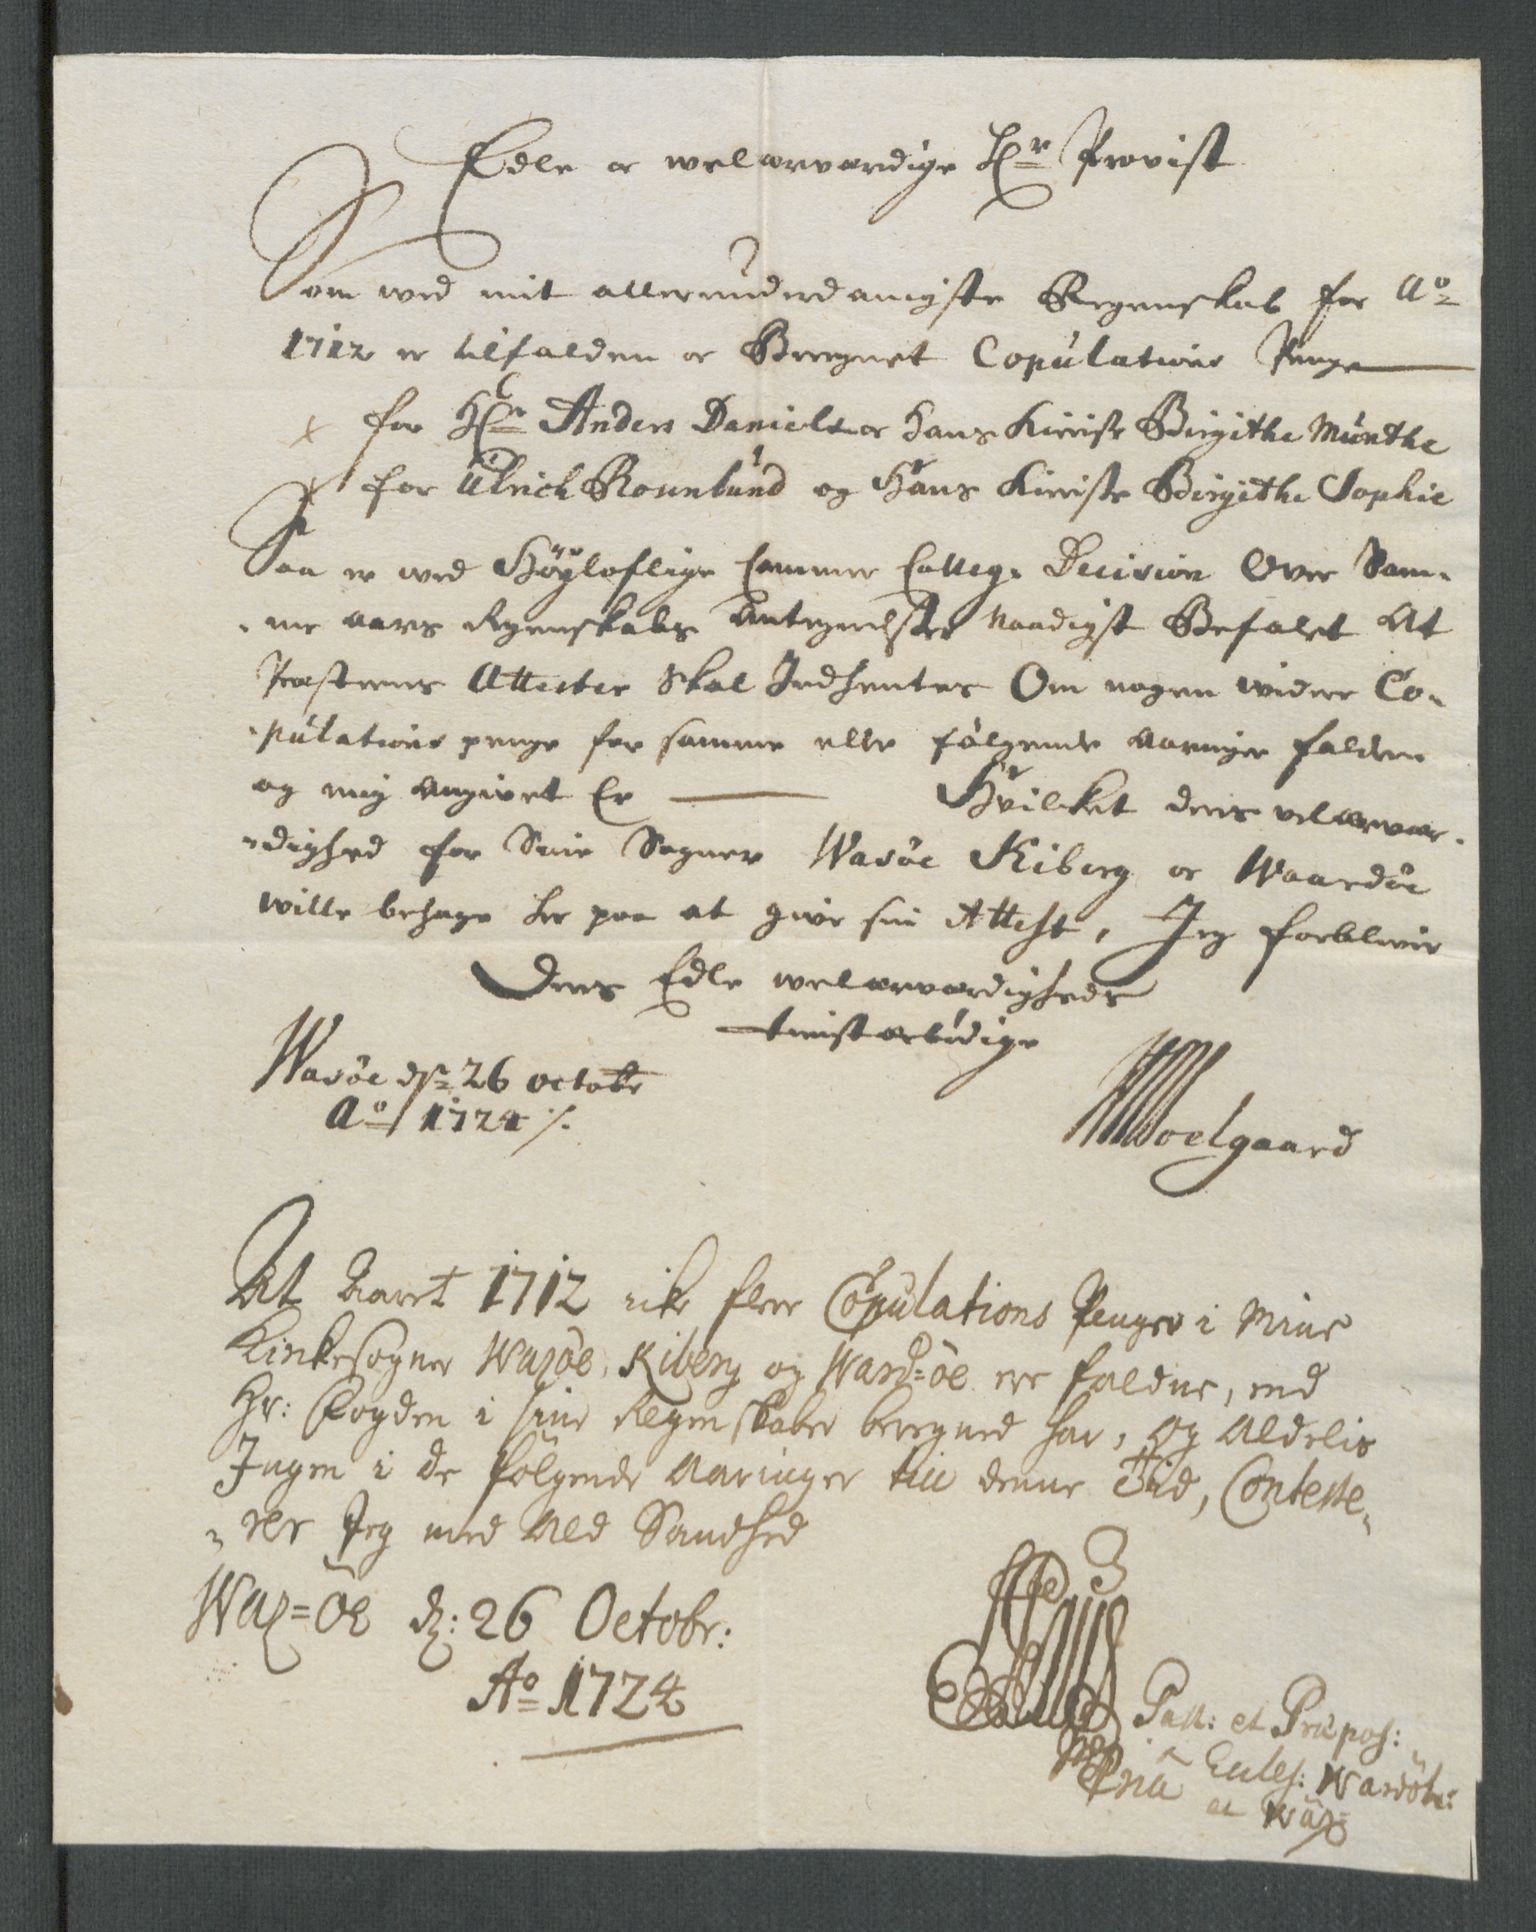 Edle oc welærværdige Hr Provist
Som wed mit allerunderdanigste Regenskab for Ao
1712 er tilfalden oc Beregnet Copulations Penge
for Hr Anders Daniels oc hans Kieriste Birgithe Munthe
for Ulrich Rosenlund og Hans Kieriste Birgithe Sophie
Saa er wed Höyloflige Cammer Colleg. Decision Over Sam-
me aars Regenskabs Antegnelster Naadigst Befalet At
Præsternes Attester Skal Indhentes Om nogen widere Co-
pulations penge for samme eller fölgende Aaringer falden
og mig Angivet Er Hvilket deres velærvær-
dighed for Sine Sogner Wasöe Kiberg oc Waardöe
wille behage her paa at give sin Attest, Jeg forbliver
Deres Edle welærværdigheds
tienstærbödige
Wasöe dn 26 octobr
Ao 1724
Woelgaard
At Aaret 1712 icke flere Copulations Penger i Mine
Kirkesogner Wazöe, Kiberg og Ward=öe ere faldne, end
Hr: Fogden i sine Regenskaber beregned har, og Aldelis
Ingen i de fölgende Aaringer till denne Tid, Conteste-
rer Jeg med Ald Sandhed
Waz=Öe d: 26 Octobr:
Ao 1724
Past: et Præpos:
Eccles: Wardöh:
et Waz